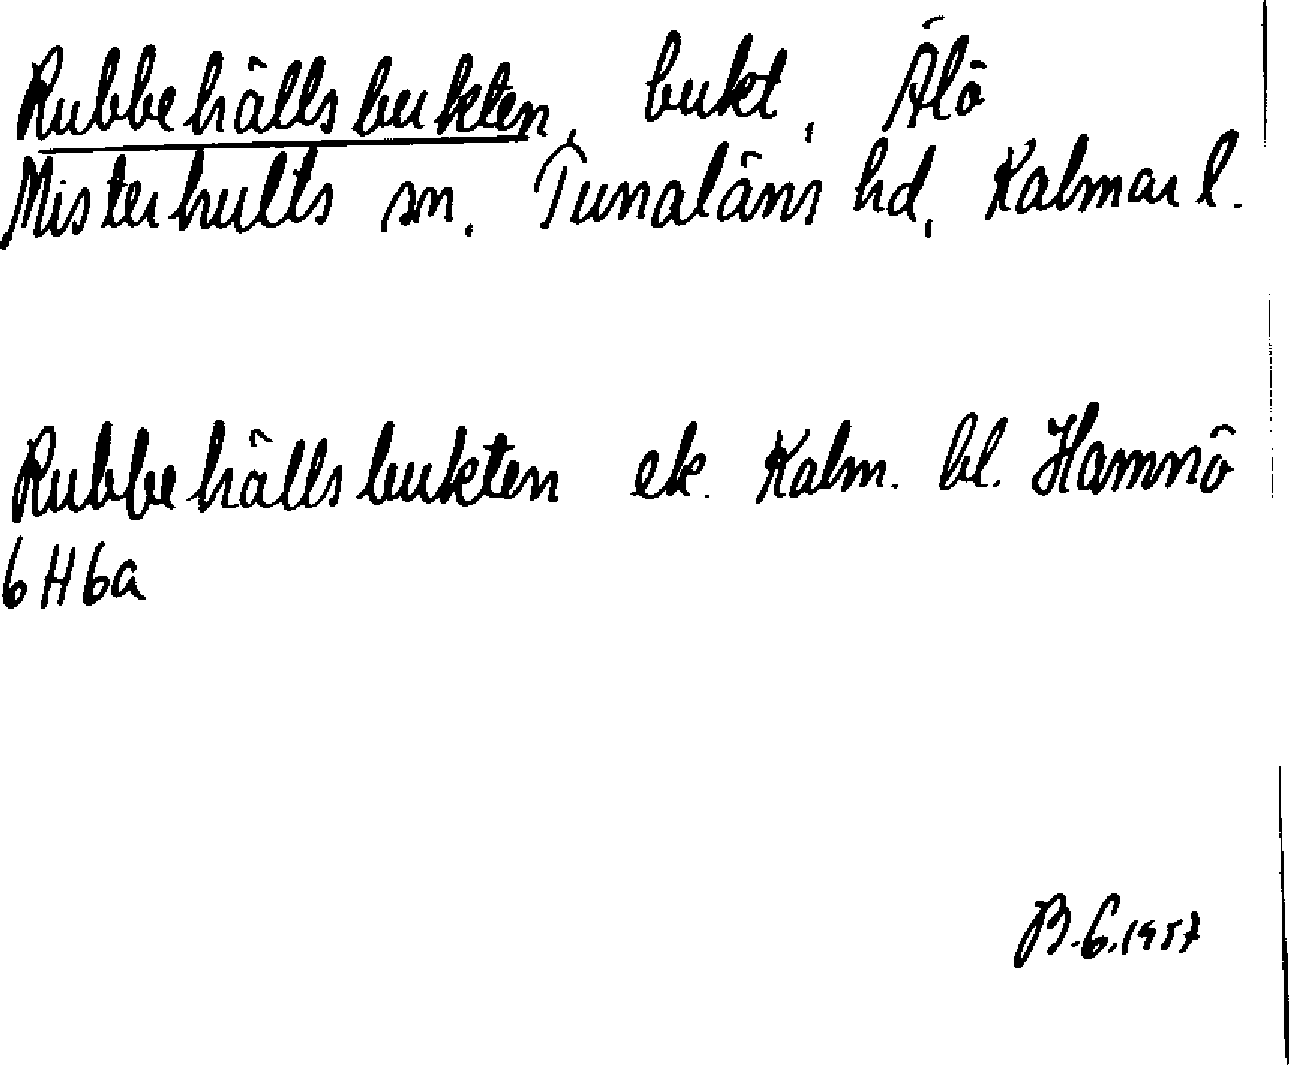 Rubbehällsbukten, bukt, Älö
Misterhults sn. Tunaläns hd, Kalmar l.
Rubbehällsbukten ek. Kalm. bl. Hamnö
6H6a
B.G.1957